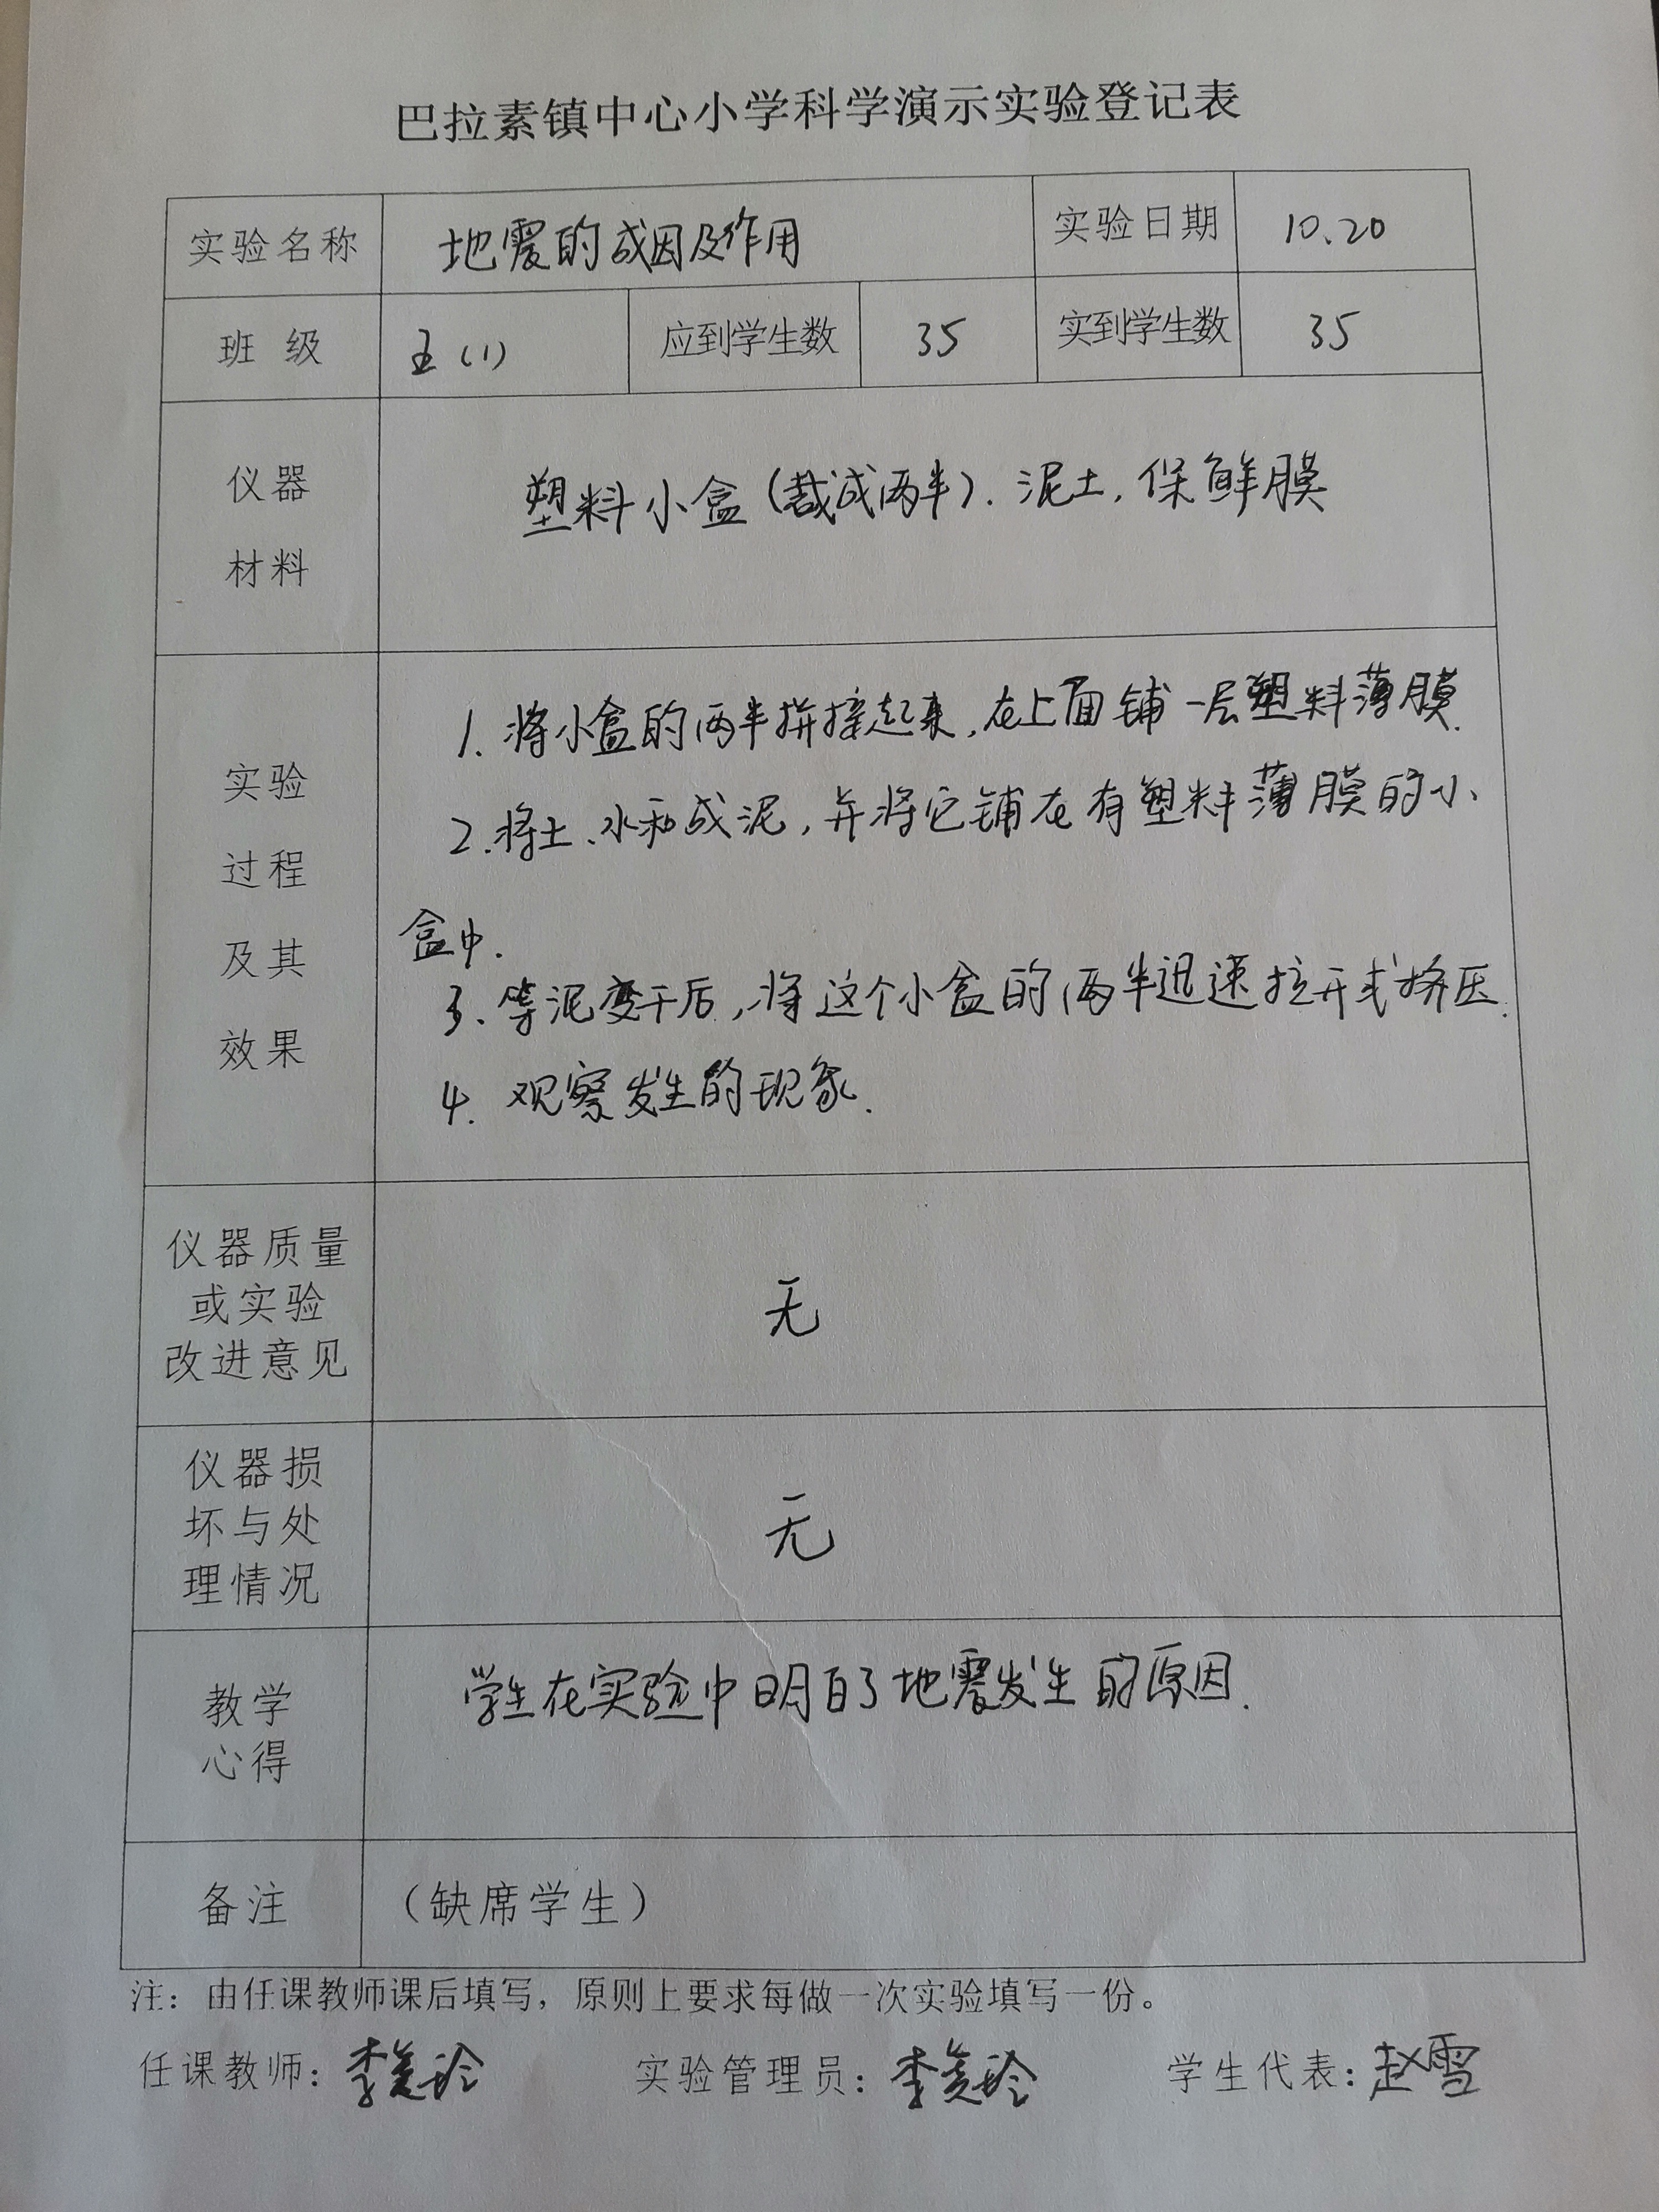 巴拉素镇中心小学科学演示实验登记表
实验名称 地震的成因及作用 实验日期 10.20
班级 五(1) 应到学生数 35 实到学生数 35
仪器
材料
塑料小盒(裁成两半).泥土,保鲜膜
实验
过程
及其
效果
1.将小盒的两半拼接起来,在上面铺一层塑料薄膜.
2.将土、水和成泥,并将它铺在有塑料薄膜的小
盒中.
3、等泥变干后,将这个小盒的两半迅速拉开或挤压.
4.观察发生的现象.
仪器质量
或实验
改进意见
无
仪器损
坏与处
理情况
无
教学
心得
学生在实验中明白了地震发生的原因.
备注 (缺席学生)
注:由任课教师课后填写,原则上要求每做一次实验填写一份。
任课教师:李美玲 实验管理员:李美玲 学生代表:赵雪